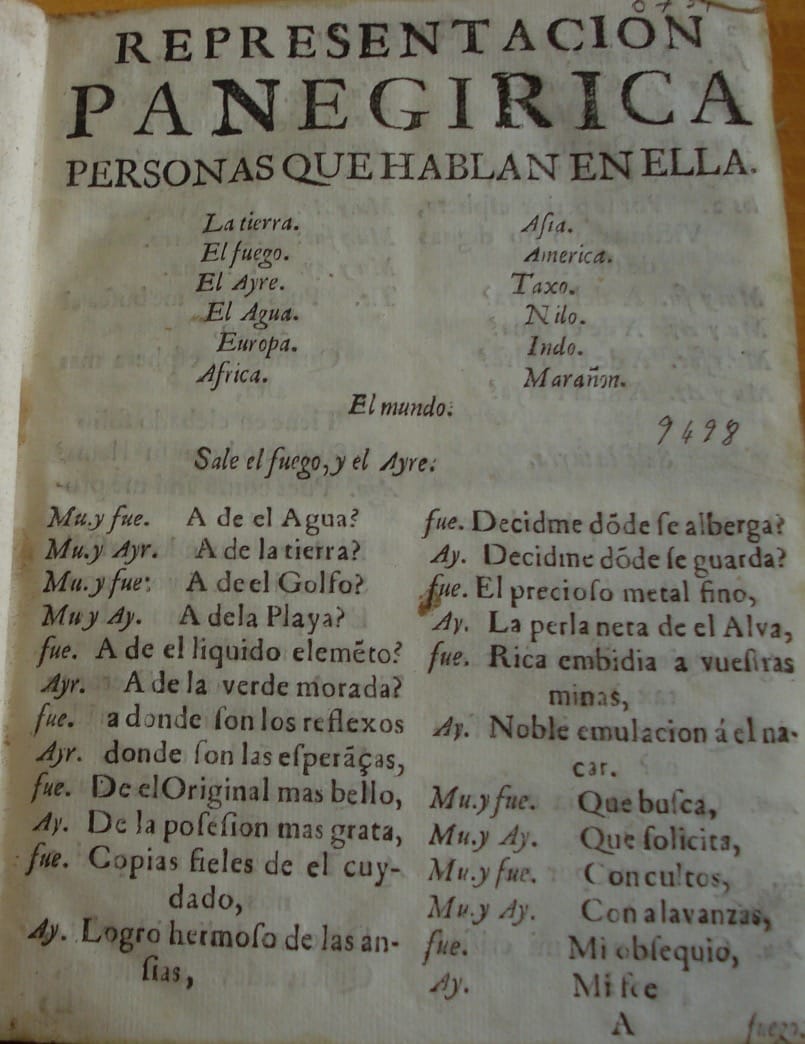 REPRESENTACION
PANEGIRICA
PERSONAS QUE HABLAN EN ELLA.
La tierra.
El fuego.
El Ayre.
El Agua.
Europa.
Africa.
Aſia.
America.
Taxo.
Nilo.
Indo.
Marañon.
El mundo.
9498
Sale el fuego, y el Ayre.
Mu.y fue. A de el Agua?
Mu.y Ayr. A de la tierra?
Mu.y fue: A de el Golfo?
Mu y Ay. A dela Playa?
fue. A de el liquido elemẽto?
Ayr. A de la verde morada?
fue. a donde ſon los reflexos
Ayr. donde ſon las eſperãças,
fue. De el Original mas bello,
Ay. De la poſeſion mas grata,
fue. Copias fieles de el cuy-
dado,
Ay. Logro hermoſo de las an-
ſias,
fue. Decidme dõde ſe alberga?
Ay. Decidme dõde ſe guarda?
fue. El precioſo metal fino,
Ay. La perla neta de el Alva,
fue. Rica embidia a vueſtras
minas,
Ay. Noble emulacion á el na-
car.
Mu.y fue. Que buſca,
Mu.y Ay. Que ſolicita,
Mu.y fue. Con cultos,
Mu.y Ay. Con alavanzas,
fue. Mi obſequio,
Ay. Mi fee
A
fuego.